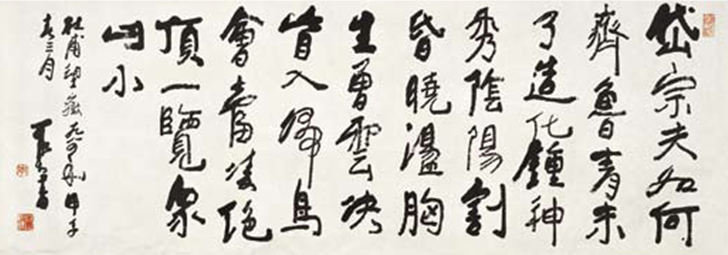 岱宗夫如何
齊魯青未
了造化鍾神
秀陰陽割
昏曉盪胸
生曾雲決
眥入歸鳥
會當凌絕
頂一覽眾
山小
杜甫望嶽 甲子
春三月 書